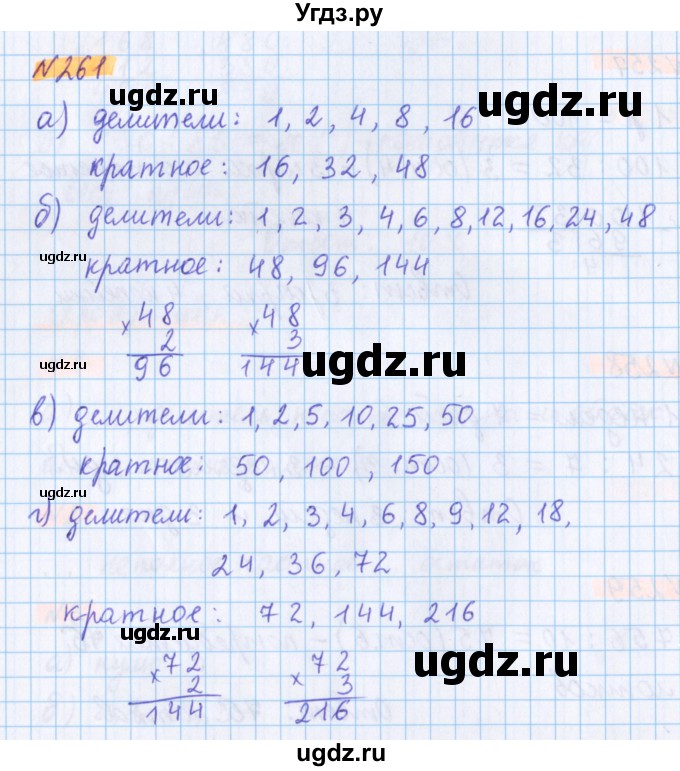 Угдз.ру
№261
а) делители: 1, 2, 4, 8, 16
ugdz.ru ugdz.ru
кратное: 16, 32, 48
б) делители: 1, 2, 3, 4, 6, 8, 12, 16, 24, 48
ugdz.ru
кратное: 48, 96, 144
× 48 × 48
2 3
96 144
ugdz.ru ugdz.ru
в) делители: 1, 2, 5, 10, 25, 50
кратное: 50, 100, 150
г) делители: 1, 2, 3, 4, 6, 8, 9, 12, 18,
ugdz.ru
24, 36, 72
кратное: 72, 144, 216
ugdz.ru
× 72 × 72
2 3
144 216
ugdz.ru ugdz.ru
ugdz.ru